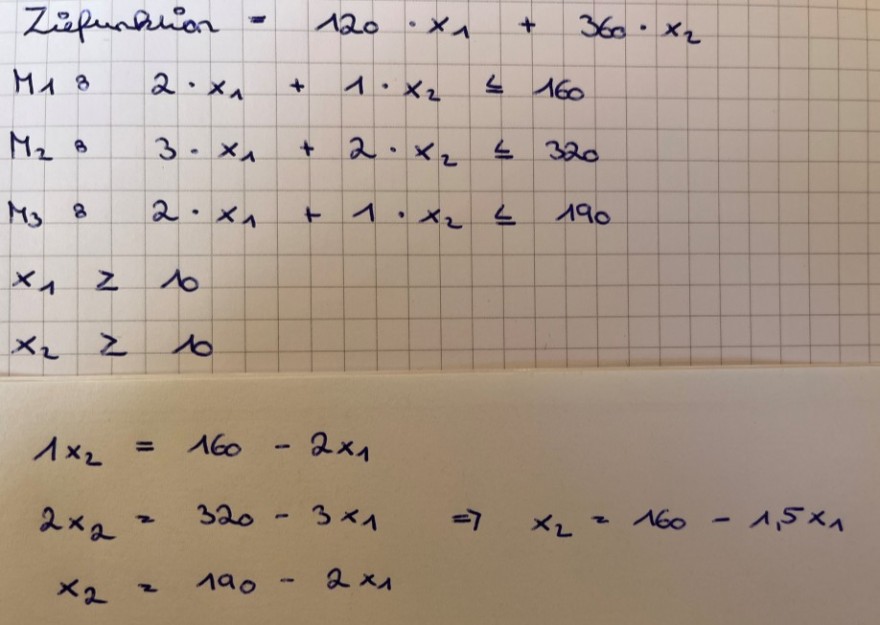 Ziefunktion = 120 · x₁ + 360 · x₂
M1 : 2 · x₁ + 1 · x₂ ≤ 160
M₂ : 3 · x₁ + 2 · x₂ ≤ 320
M₃ : 2 · x₁ + 1 · x₂ ≤ 190
x₁ ≥ 10
x₂ ≥ 10
1x₂ = 160 - 2x₁
2x₂ = 320 - 3x₁ => x₂ = 160 - 1,5x₁
x₂ = 190 - 2x₁